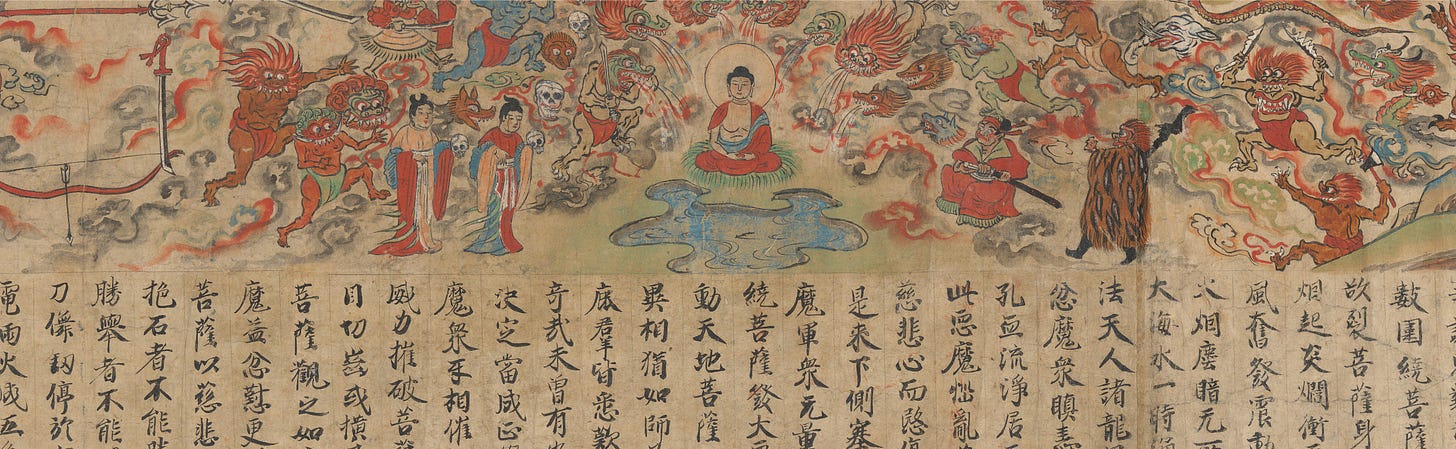 數圍繞菩薩
故裂菩薩身
烟起炎爛衝
風奮發震動
火烟塵暗无
大海水一時
法天人諸龍
忿魔衆瞋恚
孔血流淨居
此惡魔惱亂
慈悲心而愍
是来下側塞
魔軍衆无量
繞菩薩發大
動天地菩薩
異相猶如師
底羣皆悲歎
奇哉未曽有
决定當成正
魔衆互相催
威力摧破菩
目切齒或横
菩薩觀之如
魔益忿懟更
菩薩以慈悲
抱石者不能
勝舉者不能
刀儛劒停於
電雨火成五